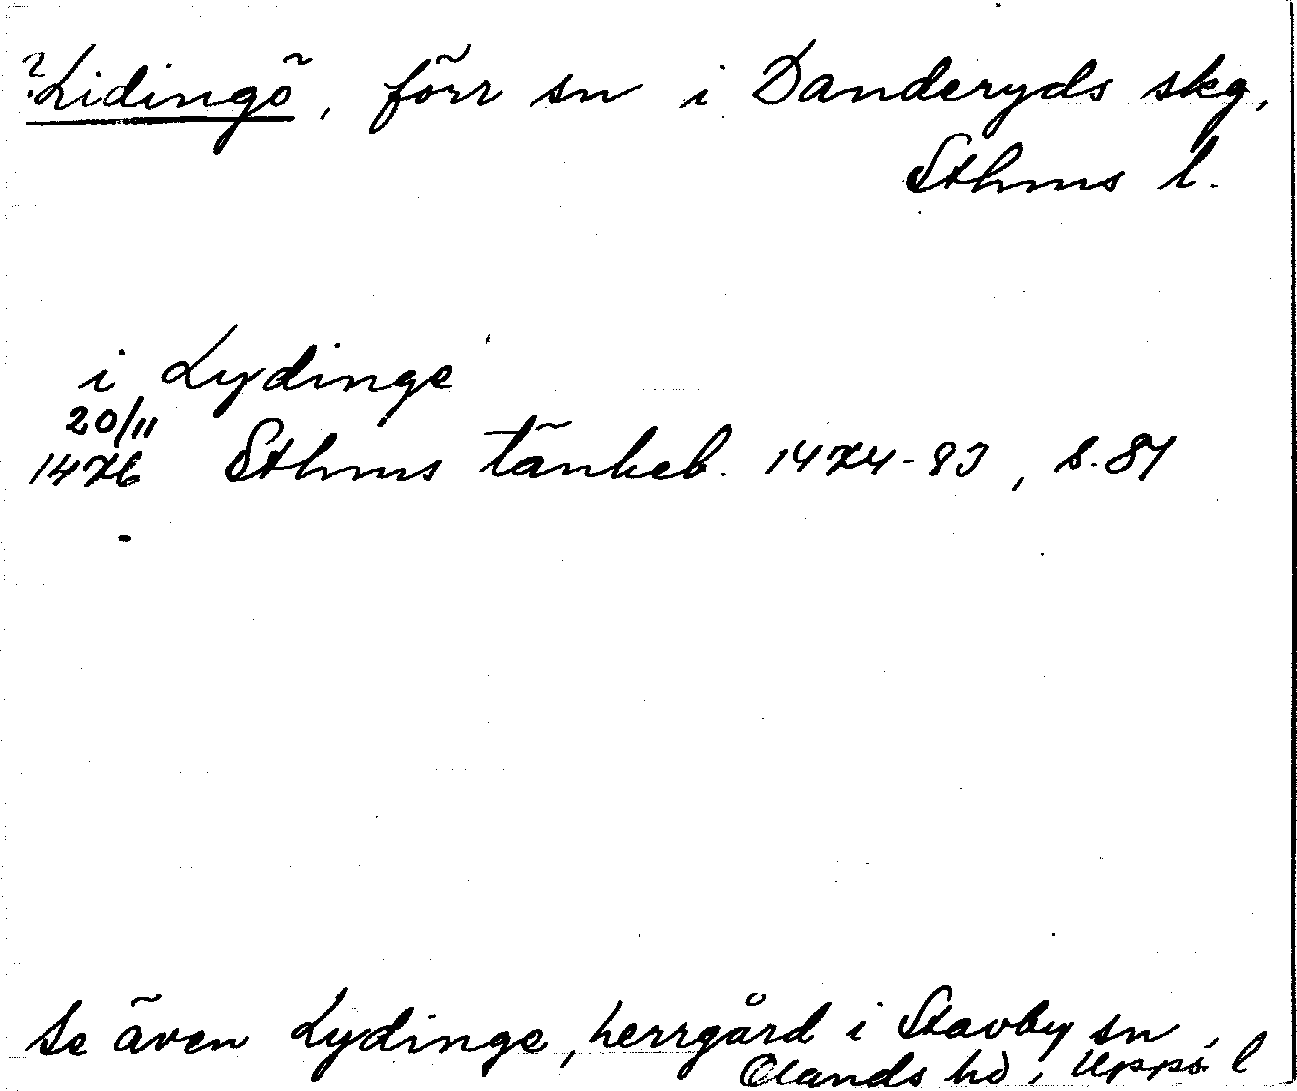 ?Lidingö, förr sn i Danderyds skg,
Sthms l.
i Lydinge
20/11
1476 Sthms tänkeb. 1474-83, s. 81
Se även Lydinge, herrgård i Stavby sn,
Olands hd, Upps. l